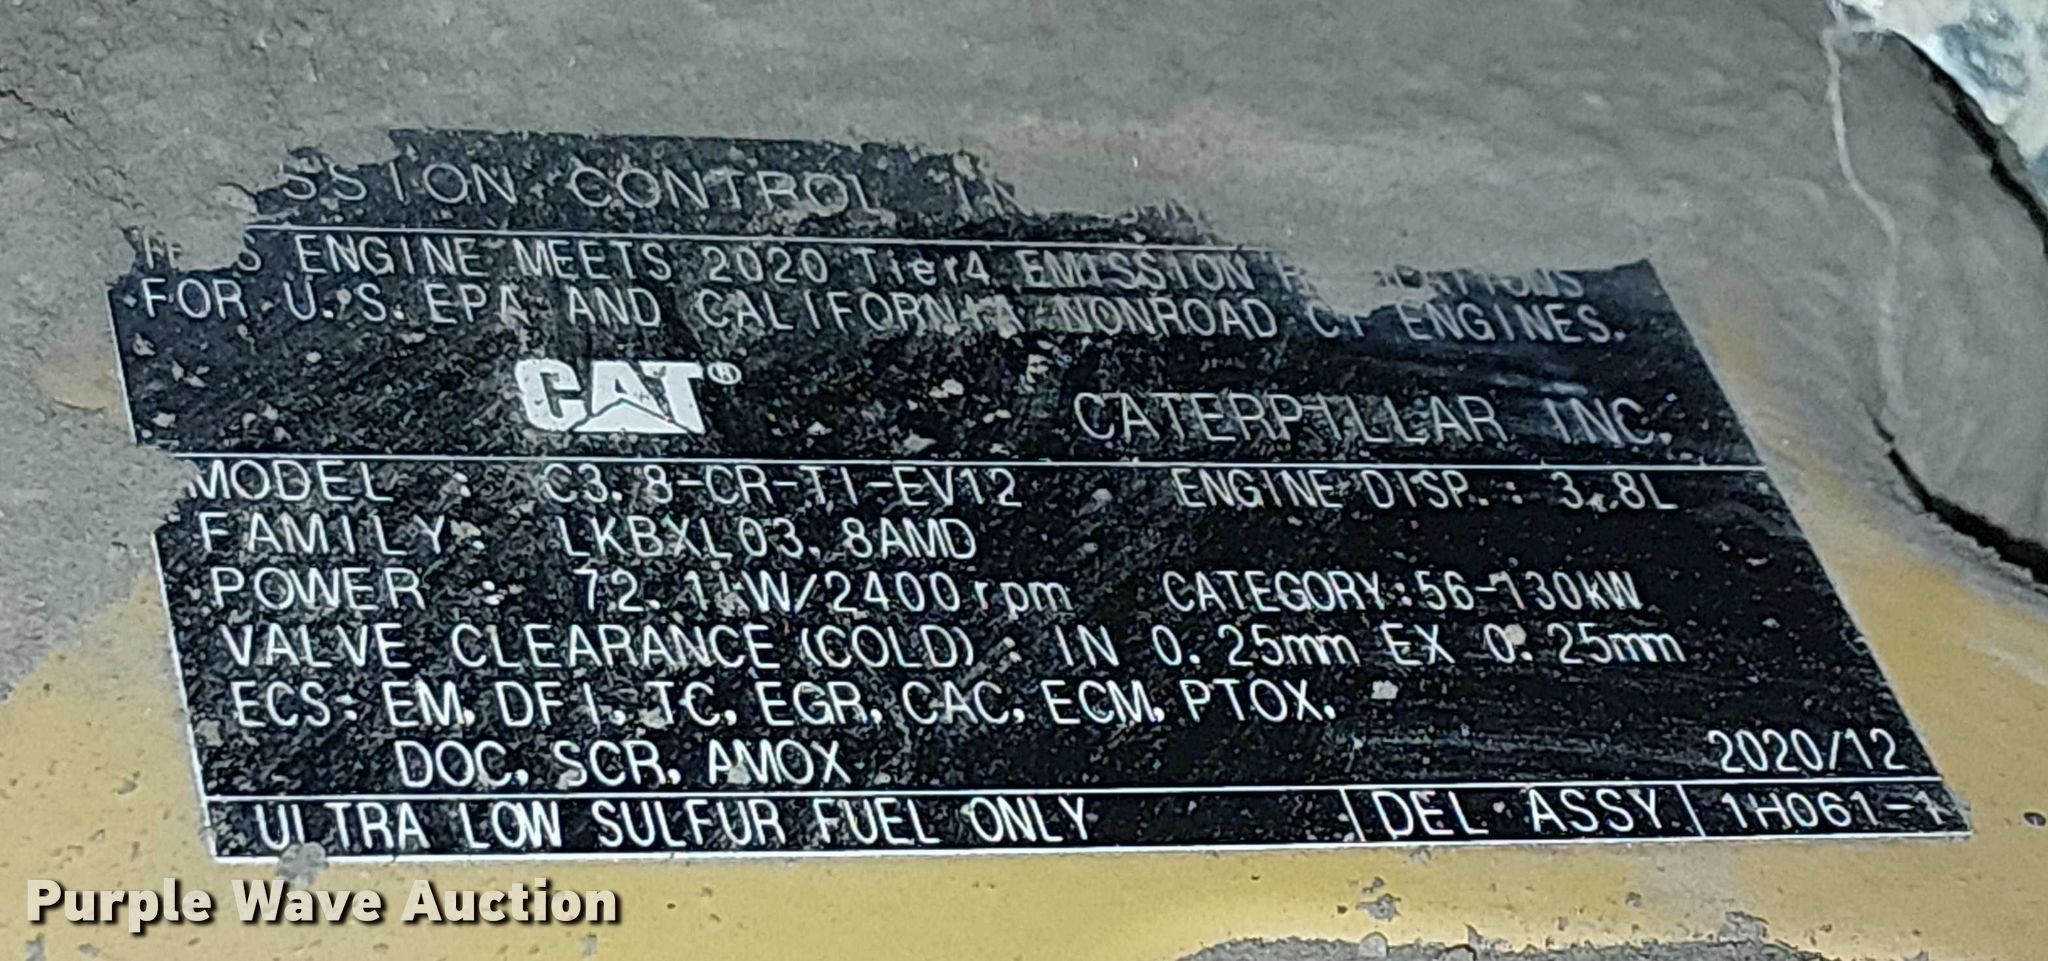 SSION CONTROL
S ENGINE MEETS 2020 Tier4 EMISSION
FOR U.S. EPA AND CALIFORNIA NONROAD CI ENGINES.
CAT®
CATERPILLAR INC.
MODEL : C3.8-CR-TI-EV12 ENGINE DISP. : 3.8L
FAMILY: LKBXL03.8AMD
POWER : 72.1kW/2400rpm CATEGORY:56-130kW
VALVE CLEARANCE (COLD) : IN 0.25mm EX 0.25mm
ECS: EM, DFI, TC, EGR, CAC, ECM, PTOX,
DOC, SCR, AMOX
2020/12
ULTRA LOW SULFUR FUEL ONLY DEL ASSY 1H061-1
Purple Wave Auction